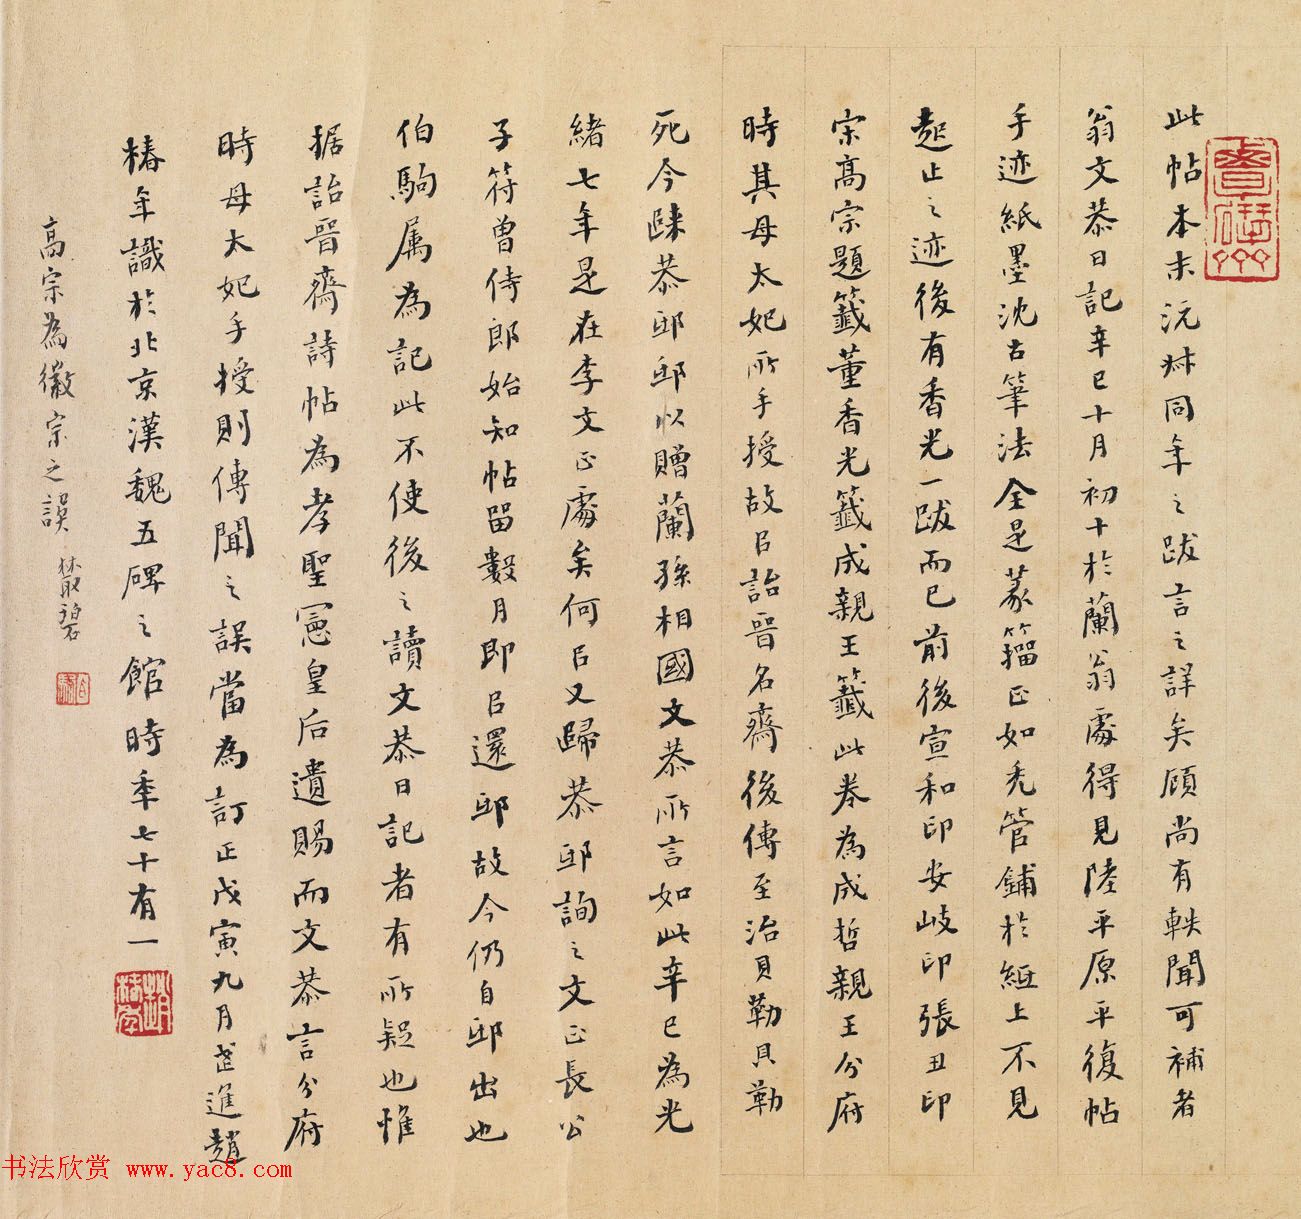 此帖本末沅尗同年之跋言之詳矣顧尚有軼聞可補者
翁文恭日記辛巳十月初十於蘭翁處得見陸平原平復帖
手迹紙墨沈古筆法全是篆籀正如禿管鋪於紙上不見
起止之迹後有香光一跋而已前後宣和印安岐印張丑印
宋高宗題籤董香光籤成親王籤此卷為成哲親王分府
時其母太妃所手授故㠯詒晉名齋後傳至治貝勒貝勒
死今歸恭邸邸以贈蘭孫相國文恭所言如此辛巳為光
緒七年是在李文正處矣何㠯又歸恭邸詢之文正長公
子符曾侍郎始知帖留數月即㠯還邸故今仍自邸出也
伯駒屬為記此不使後之讀文恭日記者有所疑也惟
据詒晉齋詩帖為孝聖憲皇后遺賜而文恭言分府
時母太妃手授則傳聞之誤當為訂正戊寅九月武進趙
椿年識於北京漢魏五碑之館時年七十有一
高宗為徽宗之誤
趙椿年
书法欣赏 www.yac8.com